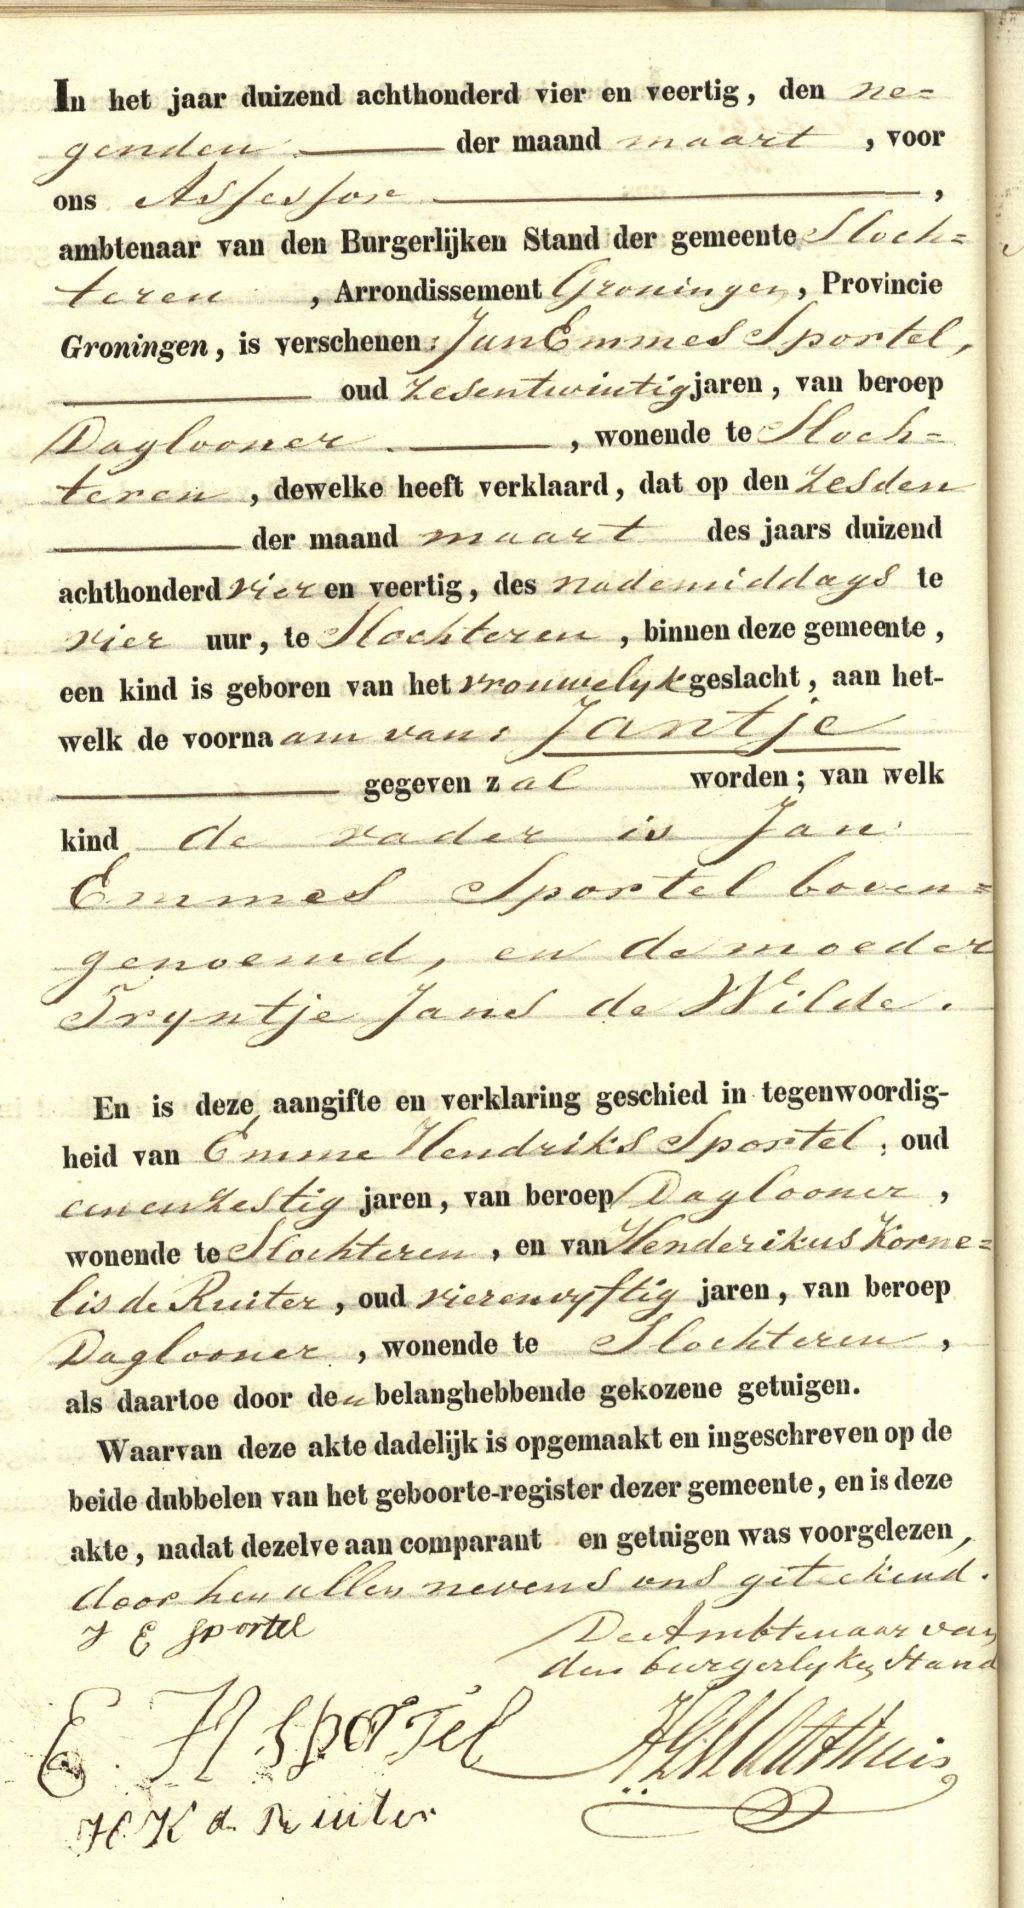 In het jaar duizend achthonderd vier en veertig, den ne=
genden der maand maart, voor
ons Assessor,
ambtenaar van den Burgerlijken Stand der gemeente Sloch=
teren, Arrondissement Groningen, Provincie
Groningen, is verschenen: Jan Emmes Sportel,
oud zesentwintig jaren, van beroep
Daglooner, wonende te Sloch=
teren, dewelke heeft verklaard, dat op den zesden
der maand maart des jaars duizend
achthonderd vier en veertig, des nademiddags te
vier uur, te Slochteren, binnen deze gemeente,
een kind is geboren van het vrouwelyk geslacht, aan het-
welk de voornaam van: Jantje
gegeven zal worden; van welk
kind de vader is Jan
Emmes Sportel boven=
genoemd, en de moeder
Tryntje Jans de Wilde.
En is deze aangifte en verklaring geschied in tegenwoordig-
heid van Emme Hendriks Sportel, oud
eenenzestig jaren, van beroep Daglooner,
wonende te Slochteren, en van Henderikus Korne=
lis de Ruiter, oud vierenvyftig jaren, van beroep
Daglooner, wonende te Slochteren,
als daartoe door den belanghebbende gekozene getuigen.
Waarvan deze akte dadelijk is opgemaakt en ingeschreven op de
beide dubbelen van het geboorte-register dezer gemeente, en is deze
akte, nadat dezelve aan comparant en getuigen was voorgelezen,
door hen allen nevens ons geteekend.
J E Sportel
De Ambtenaar van
den burgerlyken Stand
E. H Sportel
H K d Ruiter